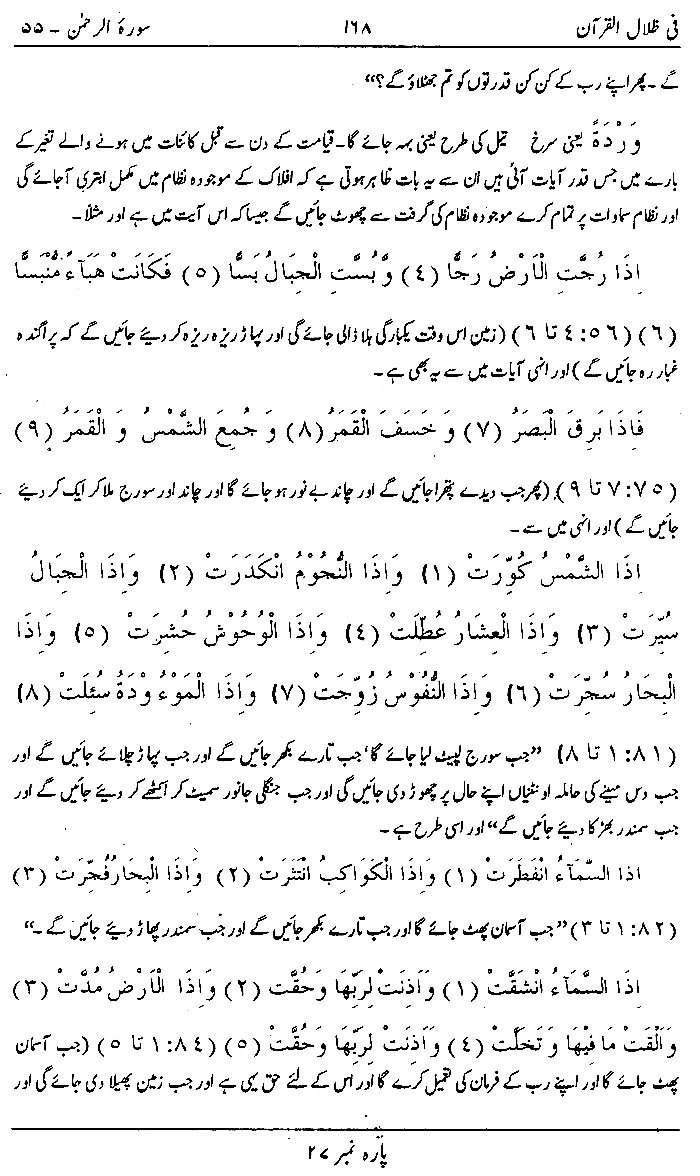 فی ظلال القرآن ۱۶۸ سورۂ الرحمٰن - ۵۵
گے - پھر اپنے رب کے کن کن قدرتوں کو تم جھٹلاؤ گے؟“
وَرْدَةً یعنی سرخ تیل کی طرح یعنی بہہ جائے گا - قیامت کے دن سے قبل کائنات میں ہونے والے تغیر کے
بارے میں جس قدر آیات آئی ہیں ان سے یہ بات ظاہر ہوتی ہے کہ افلاک کے موجودہ نظام میں مکمل ابتری آجائے گی
اور نظام سماوات پر تمام کرے موجودہ نظام کی گرفت سے چھوٹ جائیں گے جیسا کہ اس آیت میں ہے اور مثلاً -
اِذَا رُجَّتِ الْاَرْضُ رَجًّا (٤) وَّ بُسَّتِ الْجِبَالُ بَسًّا (٥) فَكَانَتْ هَبَآءً مُّنْبَسًّا
(٦) (٥٦:٤ تا ٦) (زمین اس وقت یکبارگی ہلا ڈالی جائے گی اور پہاڑ ریزہ ریزہ کر دیئے جائیں گے کہ پراگندہ
غبار رہ جائیں گے) اور انہی آیات میں سے یہ بھی ہے -
فَاِذَا بَرِقَ الْبَصَرُ (٧) وَ خَسَفَ الْقَمَرُ (٨) وَ جُمِعَ الشَّمْسُ وَ الْقَمَرُ (٩)
(٧٥:٧ تا ٩) (پھر جب دیدے پتھرا جائیں گے اور چاند بے نور ہو جائے گا اور چاند اور سورج ملا کر ایک کر دیئے
جائیں گے) اور انہی میں سے -
اِذَا الشَّمْسُ كُوِّرَتْ (١) وَاِذَا النُّجُوْمُ انْكَدَرَتْ (٢) وَاِذَا الْجِبَالُ
سُيِّرَتْ (٣) وَاِذَا الْعِشَارُ عُطِّلَتْ (٤) وَاِذَا الْوُحُوْشُ حُشِرَتْ (٥) وَاِذَا
الْبِحَارُ سُجِّرَتْ (٦) وَاِذَا النُّفُوْسُ زُوِّجَتْ (٧) وَاِذَا الْمَوْءٗ وْدَةُ سُئِلَتْ (٨)
(٨١:١ تا ٨) ”جب سورج لپیٹ لیا جائے گا‘ جب تارے بکھر جائیں گے اور جب پہاڑ چلائے جائیں گے اور
جب دس مہینے کی حاملہ اونٹنیاں اپنے حال پر چھوڑ دی جائیں گی اور جب جنگلی جانور سمیٹ کر اکٹھے کر دیئے جائیں گے اور
جب سمندر بھڑکا دیئے جائیں گے“ اور اسی طرح ہے -
اذا السَّمَآءُ انْفَطَرَتْ (١) وَاِذَا الْكَوَاكِبُ انْتَثَرَتْ (٢) وَاِذَا الْبِحَارُ فُجِّرَتْ (٣)
(٨٢:١ تا ٣) ”جب آسمان پھٹ جائے گا اور جب تارے بکھر جائیں گے اور جب سمندر پھاڑ دیئے جائیں گے -“
اِذَا السَّمَآءُ انْشَقَّتْ (١) وَاَذِنَتْ لِرَبِّهَا وَحُقَّت (٢) وَاِذَا الْاَرْضُ مُدَّتْ (٣)
وَاَلْقَتْ مَا فِيْهَا وَ تَخَلَّتْ (٤) وَاَذِنَتْ لِرَبِّهَا وَحُقَّتْ (٥) (٨٤:١ تا ٥) (جب آسمان
پھٹ جائے گا اور اپنے رب کے فرمان کی تعمیل کرے گا اور اس کے لئے حق یہی ہے اور جب زمین پھیلا دی جائے گی اور
پارہ نمبر ۲۷